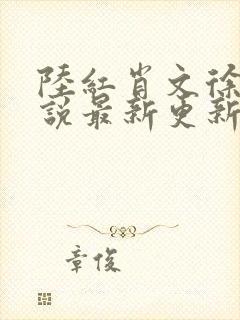 陸紅肖文徐
說最新更新
章俊